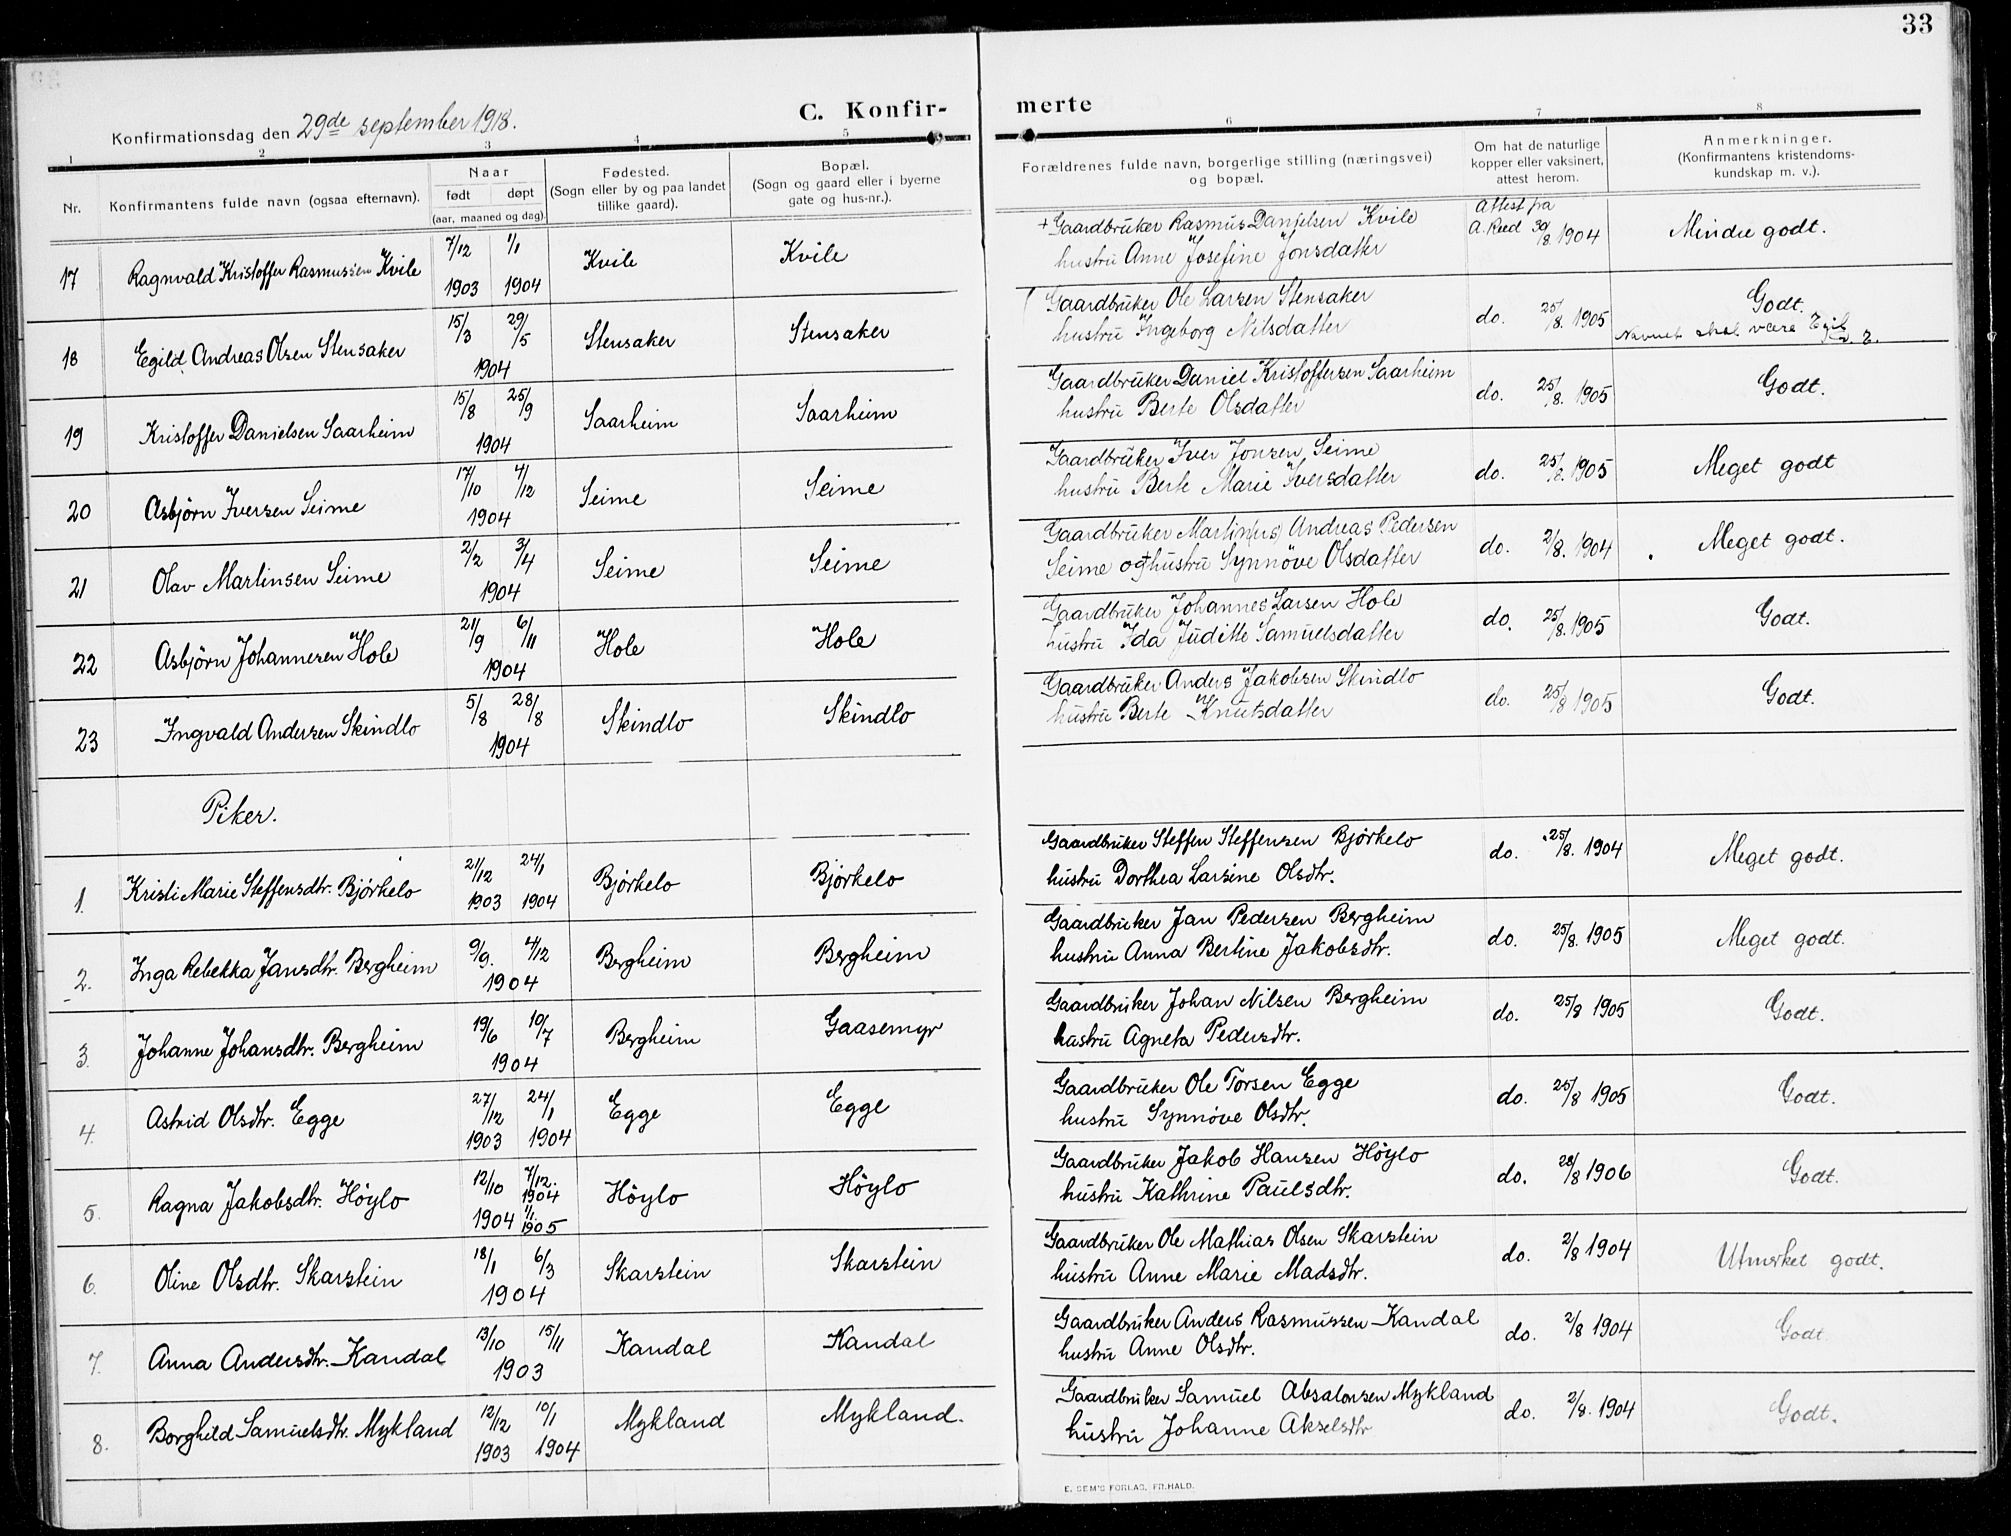 33
C. Konfir- merte
Konfirmationsdag den 29de september 1918.
1 2 3 4 5 6 7 8
Nr.
Konfirmantens fulde navn (ogsaa efternavn).
Naar
født døpt
(aar, maaned og dag).
Fødested.
(Sogn eller by og paa landet
tillike gaard).
Bopæl.
(Sogn og gaard eller i byerne
gate og hus-nr.).
Forældrenes fulde navn, borgerlige stilling (næringsvei)
og bopæl.
Om hat de naturlige
kopper eller vaksinert,
attest herom.
Anmerkninger.
(Konfirmantens kristendoms-
kundskap m. v.).
17 Ragnvald Kristoffer Rasmussen Kvile 7/12 1903 1/1 1904 Kvile Kvile
+ Gaardbruker Rasmus Danielsen Kvile
hustru Anne Josefine Jonsdatter
Attest fra
A. Reed 30/8 1904
Mindre godt.
18 Egild Andreas Olsen Stensaker 15/3 29/5 1904 Stensaker Stensaker
Gaardbruker Ole Larsen Stensaker
hustru Ingeborg Nilsdatter
do. 25/8. 1905
Godt.
Navnet skal være Egil
19 Kristoffer Danielsen Saarheim 15/8 25/9 1904 Saarheim Saarheim
Gaardbruker Daniel Kristoffersen Saarheim
hustru Berte Olsdatter
do. 25/8. 1905
Godt.
20 Asbjörn Iversen Seime 17/10 4/12 1904 Seime Seime
Gaardbruker Iver Jonsen Seime
hustru Berte Marie Iversdatter
do. 25/8. 1905
Meget godt
21 Olav Martinsen Seime 2/2 3/4 1904 Seime Seime
Gaardbruker Martin(us) Andreas Pedersen
Seime og hustru Synnöve Olsdatter
do. 2/8. 1904
Meget godt.
22 Asbjörn Johannesen Hole 21/9 6/11 1904 Hole Hole
Gaardbruker Johannes Larsen Hole
hustru Ida Juditte Samuelsdatter
do. 25/8. 1905
Godt.
23 Ingvald Andersen Skindlo 5/8 28/8 1904 Skindlo Skindlo
Gaardbruker Anders Jakobsen Skindlo
hustru Berte Knutsdatter
do. 25/8 1905
Godt.
Piker.
1. Kristi Marie Steffensdtr. Björkelo 21/12 1903 24/1 1904 Björkelo Björkelo
Gaardbruker Steffen Steffensen Björkelo
hustru Dorthea Larsine Olsdtr.
do. 25/8. 1904
Meget godt.
2. Inga Rebekka Jansdtr. Bergheim 9/9. 4/12 1904 Bergheim Bergheim
Gaardbruker Jan Pedersen Bergheim
hustru Anna Bertine Jakobsdtr.
do. 25/8. 1905
Meget godt.
3. Johanne Johansdtr. Bergheim 19/6 10/7 1904 Bergheim Gaasemyr
Gaardbruker Johan Nilsen Bergheim
hustru Agneta Pedersdtr.
do. 25/8 1905
Godt.
4. Astrid Olsdtr. Egge 27/12 1903 24/1 1904 Egge Egge
Gaardbruker Ole Torsen Egge
hustru Synnöve Olsdtr.
do. 25/8 1905
Godt.
5. Ragna Jakobsdtr. Höylo 12/10 1904 7/12. 1904 1/1. 1905 Höylo Höylo
Gaardbruker Jakob Hansen Höylo
hustru Kathrine Paulsdtr.
do. 28/8 1906
Godt.
6. Oline Olsdtr. Skarstein 18/1 6/3 1904 Skarstein Skarstein
Gaardbruker Ole Mathias Olsen Skarstein
hustru Anne Marie Madsdtr.
do. 2/8 1904
Utmerket godt.
7. Anna Andersdtr. Kandal 13/10 15/11 1903 Kandal Kandal
Gaardbruker Anders Rasmussen Kandal
hustru Anne Olsdtr.
do. 2/8 1904
Godt.
8. Borghild Samuelsdtr. Mykland 12/12 1903 10/1 1904 Mykland Mykland.
Gaardbruker Samuel Absalonsen Mykland
hustru Johanne Akselsdtr
do. 2/8. 1904
Godt.
E. SEM'S FORLAG, FR.HALD.